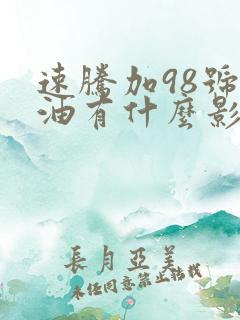 速騰加98號
油有什麼影
長月亞美
未经同意禁止转载